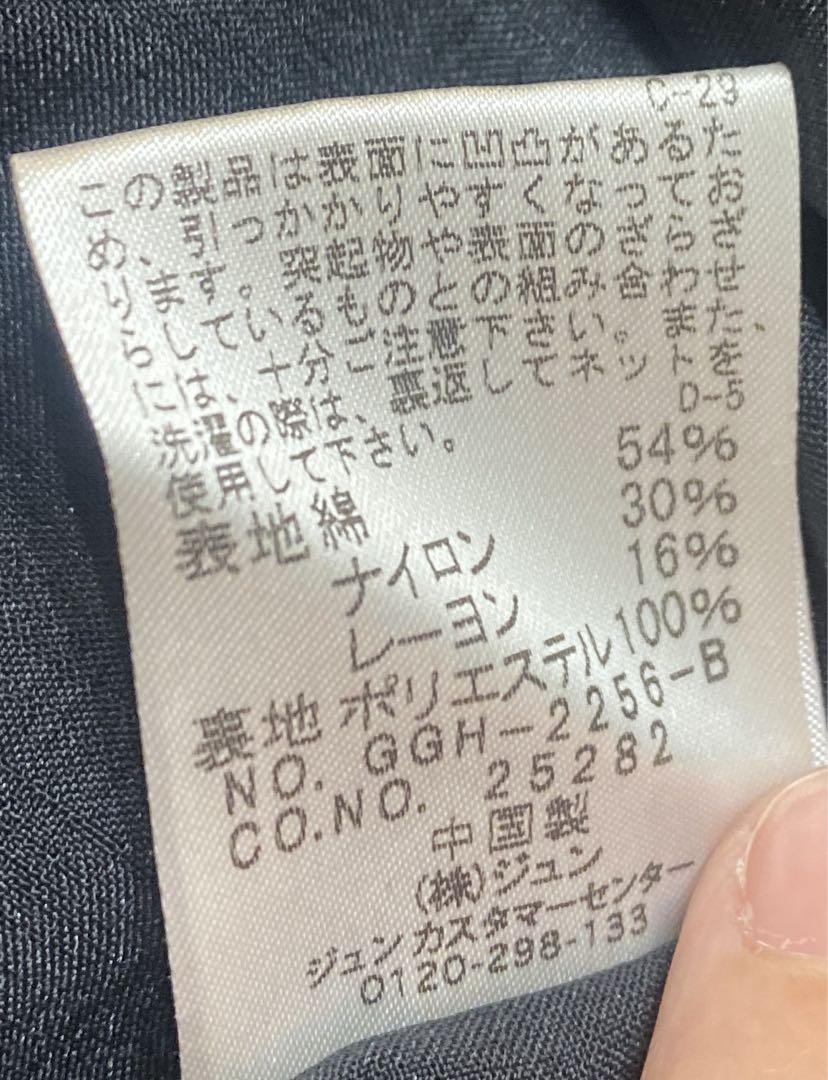 C-29
この製品は表面に凹凸があるた
め、引っかかりやすくなってお
ります。突起物や表面のざらざ
らしているものとの組み合わせ
には、十分ご注意下さい。また
洗濯の際は、裏返してネットを
使用して下さい。
D-5
表地 綿 54%
ナイロン 30%
レーヨン 16%
裏地 ポリエステル100%
NO. GGH-2256-B
CO.NO. 25282
中国製
(株)ジュン
ジュンカスタマーセンター
0120-298-133